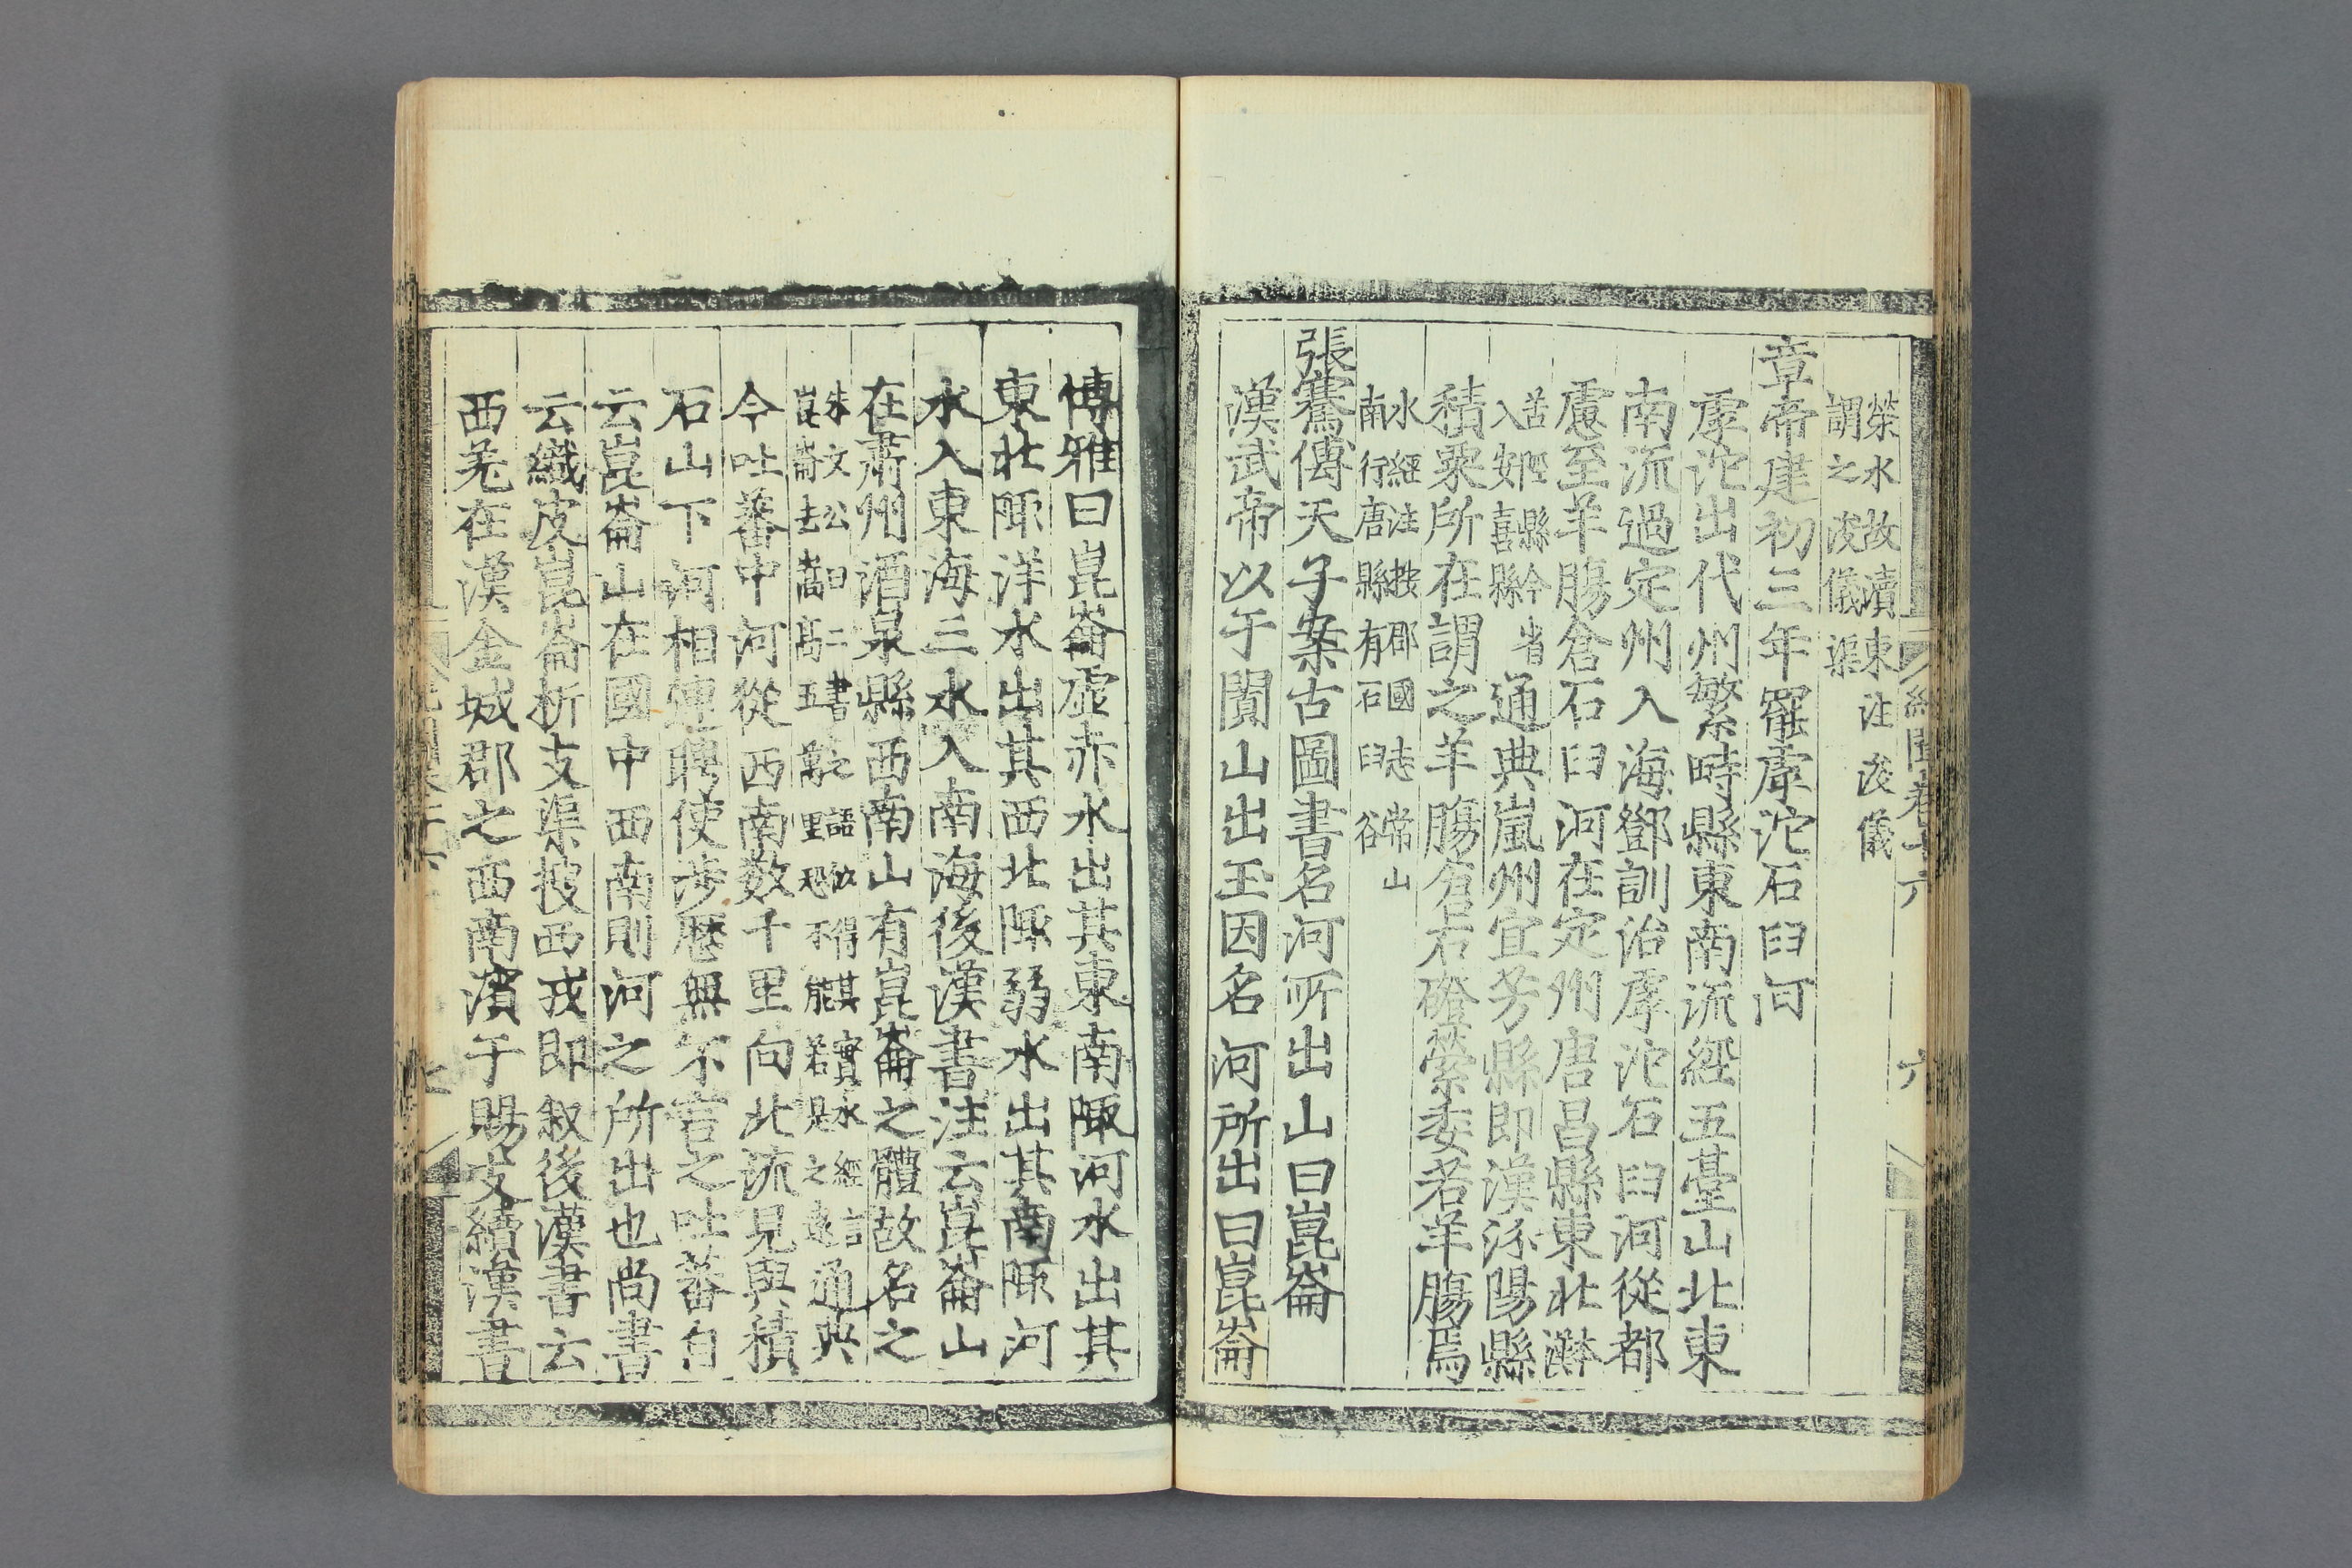 滎水故瀆東注浚儀
謂之浚儀渠
章帝建初三年罷虖沱石臼河
虖沱出代州繁畤縣東南流經五臺山北東
南流過定州入海鄧訓治虖沱石臼河從都
慮至羊腸倉石臼河在定州唐昌縣東北
苦陘縣今省
入安喜縣
通典嵐州宜芳縣即漢汾陽縣
積粟所在謂之羊腸倉石磴縈委若羊腸焉
水經注按郡國志常山
南行唐縣有石臼谷
張騫傳天子案古圖書名河所出山曰崑崙
漢武帝以于闐山出玉因名河所出曰崑崙
博雅曰崑崙虛赤水出其東南陬河水出其
東北陬洋水出其西北陬弱水出其南陬河
水入東海三水入南海後漢書注云崑崙山
在肅州酒泉縣西南山有崑崙之體故名之
朱文公曰二書之語似得其實水經言
崑崙去嵩高五萬里恐不能若是之遠
通典
今吐蕃中河從西南數千里向北流見與積
石山下河相連聘使涉歷無不言之吐蕃自
云崑崙山在國中西南則河之所出也尚書
云織皮崑崙析支渠搜西戎即叙後漢書云
西羌在漢金城郡之西南濱于賜支續漢書